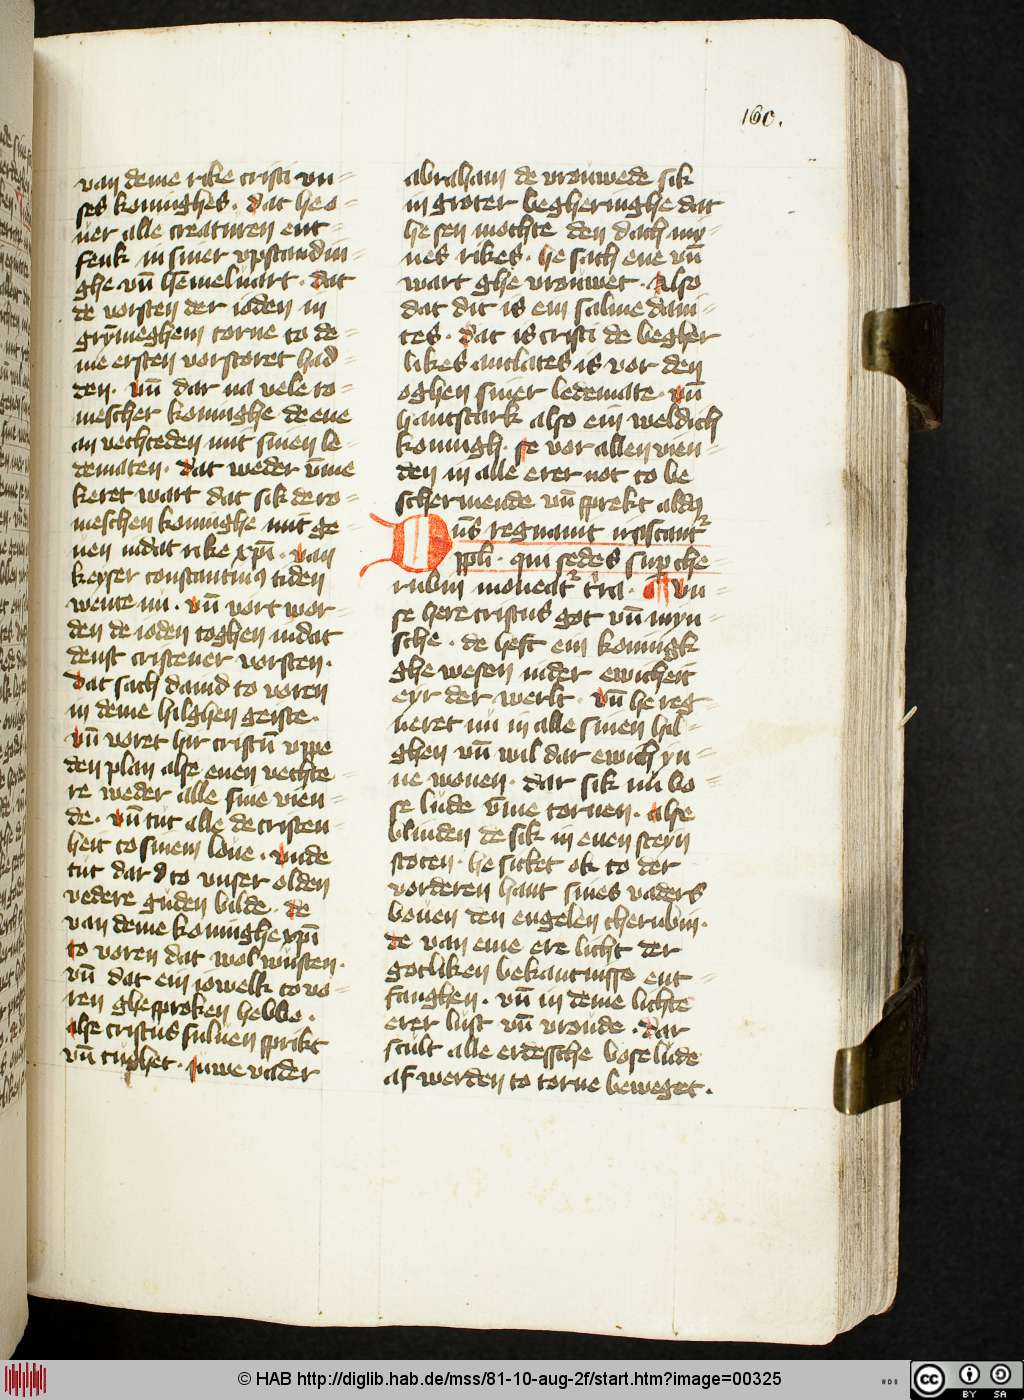 160.
van deme rike cristi vn=
ses konninghes. dat he o=
uer alle creaturen ent=
fenk in siner vpstandin=
ghe vn̄ hēmeluart. dat
de vorsten der ioden in
grȳmeghem torne to de=
me ersten vorstoret had=
den. vn̄ dar na vele ro=
mescher konnighe de ene
an vechteden mit sinen le=
dematen. dat weder v̄me
keret wart dat sik de ro=
meschen konnighe mit ge=
uen in dat rike xp̄i. van
keyser constantinꝰ tiden
wente nu. vn̄ vort wor=
den de ioden toghen in dat
denst cristener vorsten.
dat sach dauid to voren
in deme hilghen geiste.
vn̄ voret hir cristū vppe
den plan alse enen vechte=
re weder alle sine vien=
de. vn̄ tut alle de cristen=
heit to sinem loue. vnde
tut dar to vnser olden
vedere guden bilde. de
van deme konnighe xp̄i
to voren dat wol wusten.
vn̄ dat ein iowelk to vo=
ren ghesproken hebbe.
alse cristus suluen sprikt
vn̄ tughet. Juwe vader
abraham de vrouwede sik
in groter begheringhe dat
he sen mochte den dach my=
nes rikes. he sach ene vn̄
wart ghe vrouwet. Also
dat dit is ein salme daui=
tes. dat is cristi de begher
likes antlates is vor den
oghen siner ledemate. vn̄
hantstark also ein weldich
konnigh. se vor allen vien=
den in alle erer not to be
schermende vn̄ sprekt aldꝰ
Dn̄s regnauit irascant᷑
ppl̄i. qui sedes sup che=
rubin moueat᷑ t̄ra. ¶ Vn=
se here cristus got vn̄ myn=
sche. de heft ein konnigk
ghe wesen in der ewicheit
eyr der werlt. vn̄ he reg=
neret nu in alle sinen hil=
ghen vn̄ wil dar ewich yn=
ne wonen. dar sik nu bo=
se lude v̄me tornen. alse
blinden de sik in enen steyn
stoten. he sittet ok to der
vorderen hant sines vaders
bouen den engelen cherubin.
de van eme ere licht der
gotliken bekantnisse ent=
fanghen. vn̄ in deme lichte
erer lust vn̄ vroude. dar
scult alle erdessche bose lude
af werden to torne beweget.
© HAB http://diglib.hab.de/mss/81-10-aug-2f/start.htm?image=00325
HAB
cc BY SA